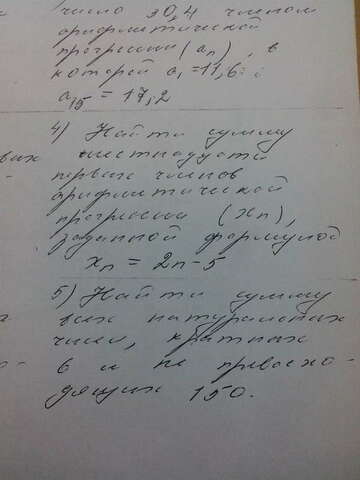 число 30,4 членом
арифметической
прогрессии (aₙ), в
которой a₁ = 11,6 и
a₁₅ = 17,2
4) Найти сумму
шестнадцати
первых членов
арифметической
прогрессии (xₙ),
заданной формулой
xₙ = 2n - 5
5) Найти сумму
всех натуральных
чисел, кратных
6 и не превосхо-
дящих 150.